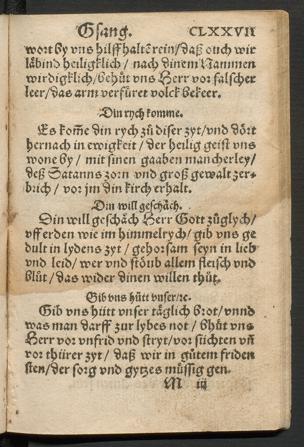 Gsang. CLXXVII
wort by vns hilff haltē rein/daß ouch wir
läbind heiligklich / nach dinem Nammen
wirdigklich/behüt vns Herr vor falscher
leer/das arm verfüret volck bekeer.
Din rych komme.
Es kom̄e din rych zů diser zyt/vnd dört
hernach in ewigkeit / der heilig geist vns
wone by / mit sinen gaaben mancherley/
deß Satanns zorn vnd groß gewalt zer-
brich / vor jm din kirch erhalt.
Din will geschäch.
Din will geschäch Herr Gott zůglych/
vff erden wie im himmelrych/ gib vns ge
dult in lydens zyt / gehorsam seyn in lieb
vnd leid/ wer vnd stöub allem fleisch vnd
blůt / das wider dinen willen thůt.
Gib vns hütt vnser/rc.
Gib vns hütt vnser täglich brot/vnnd
was man darff zur lybes not / bhüt vns
Herr vor vnfrid vnd stryt/vor stichten vn̄
vor thürer zyt / daß wir in gůtem friden
sten/der sorg vnd gytzes müssig gen.
M iij